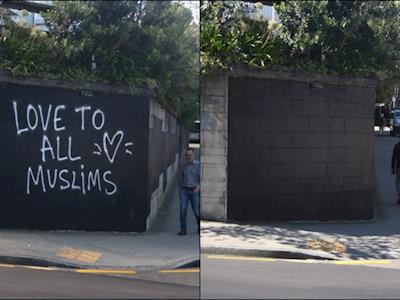 LOVE TO
ALL
MUSLIMS